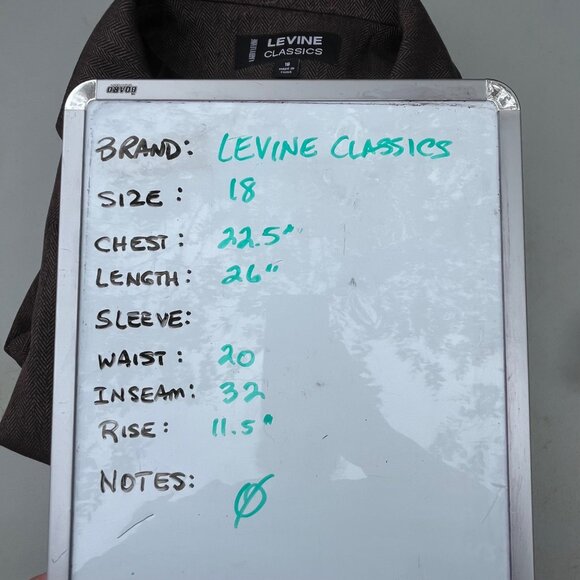 LEVINE
CLASSICS
18
BOARD
BRAND: LEVINE CLASSICS
SIZE: 18
CHEST: 22.5"
LENGTH: 26"
SLEEVE:
WAIST: 20
INSEAM: 32
RISE: 11.5"
NOTES: Ø